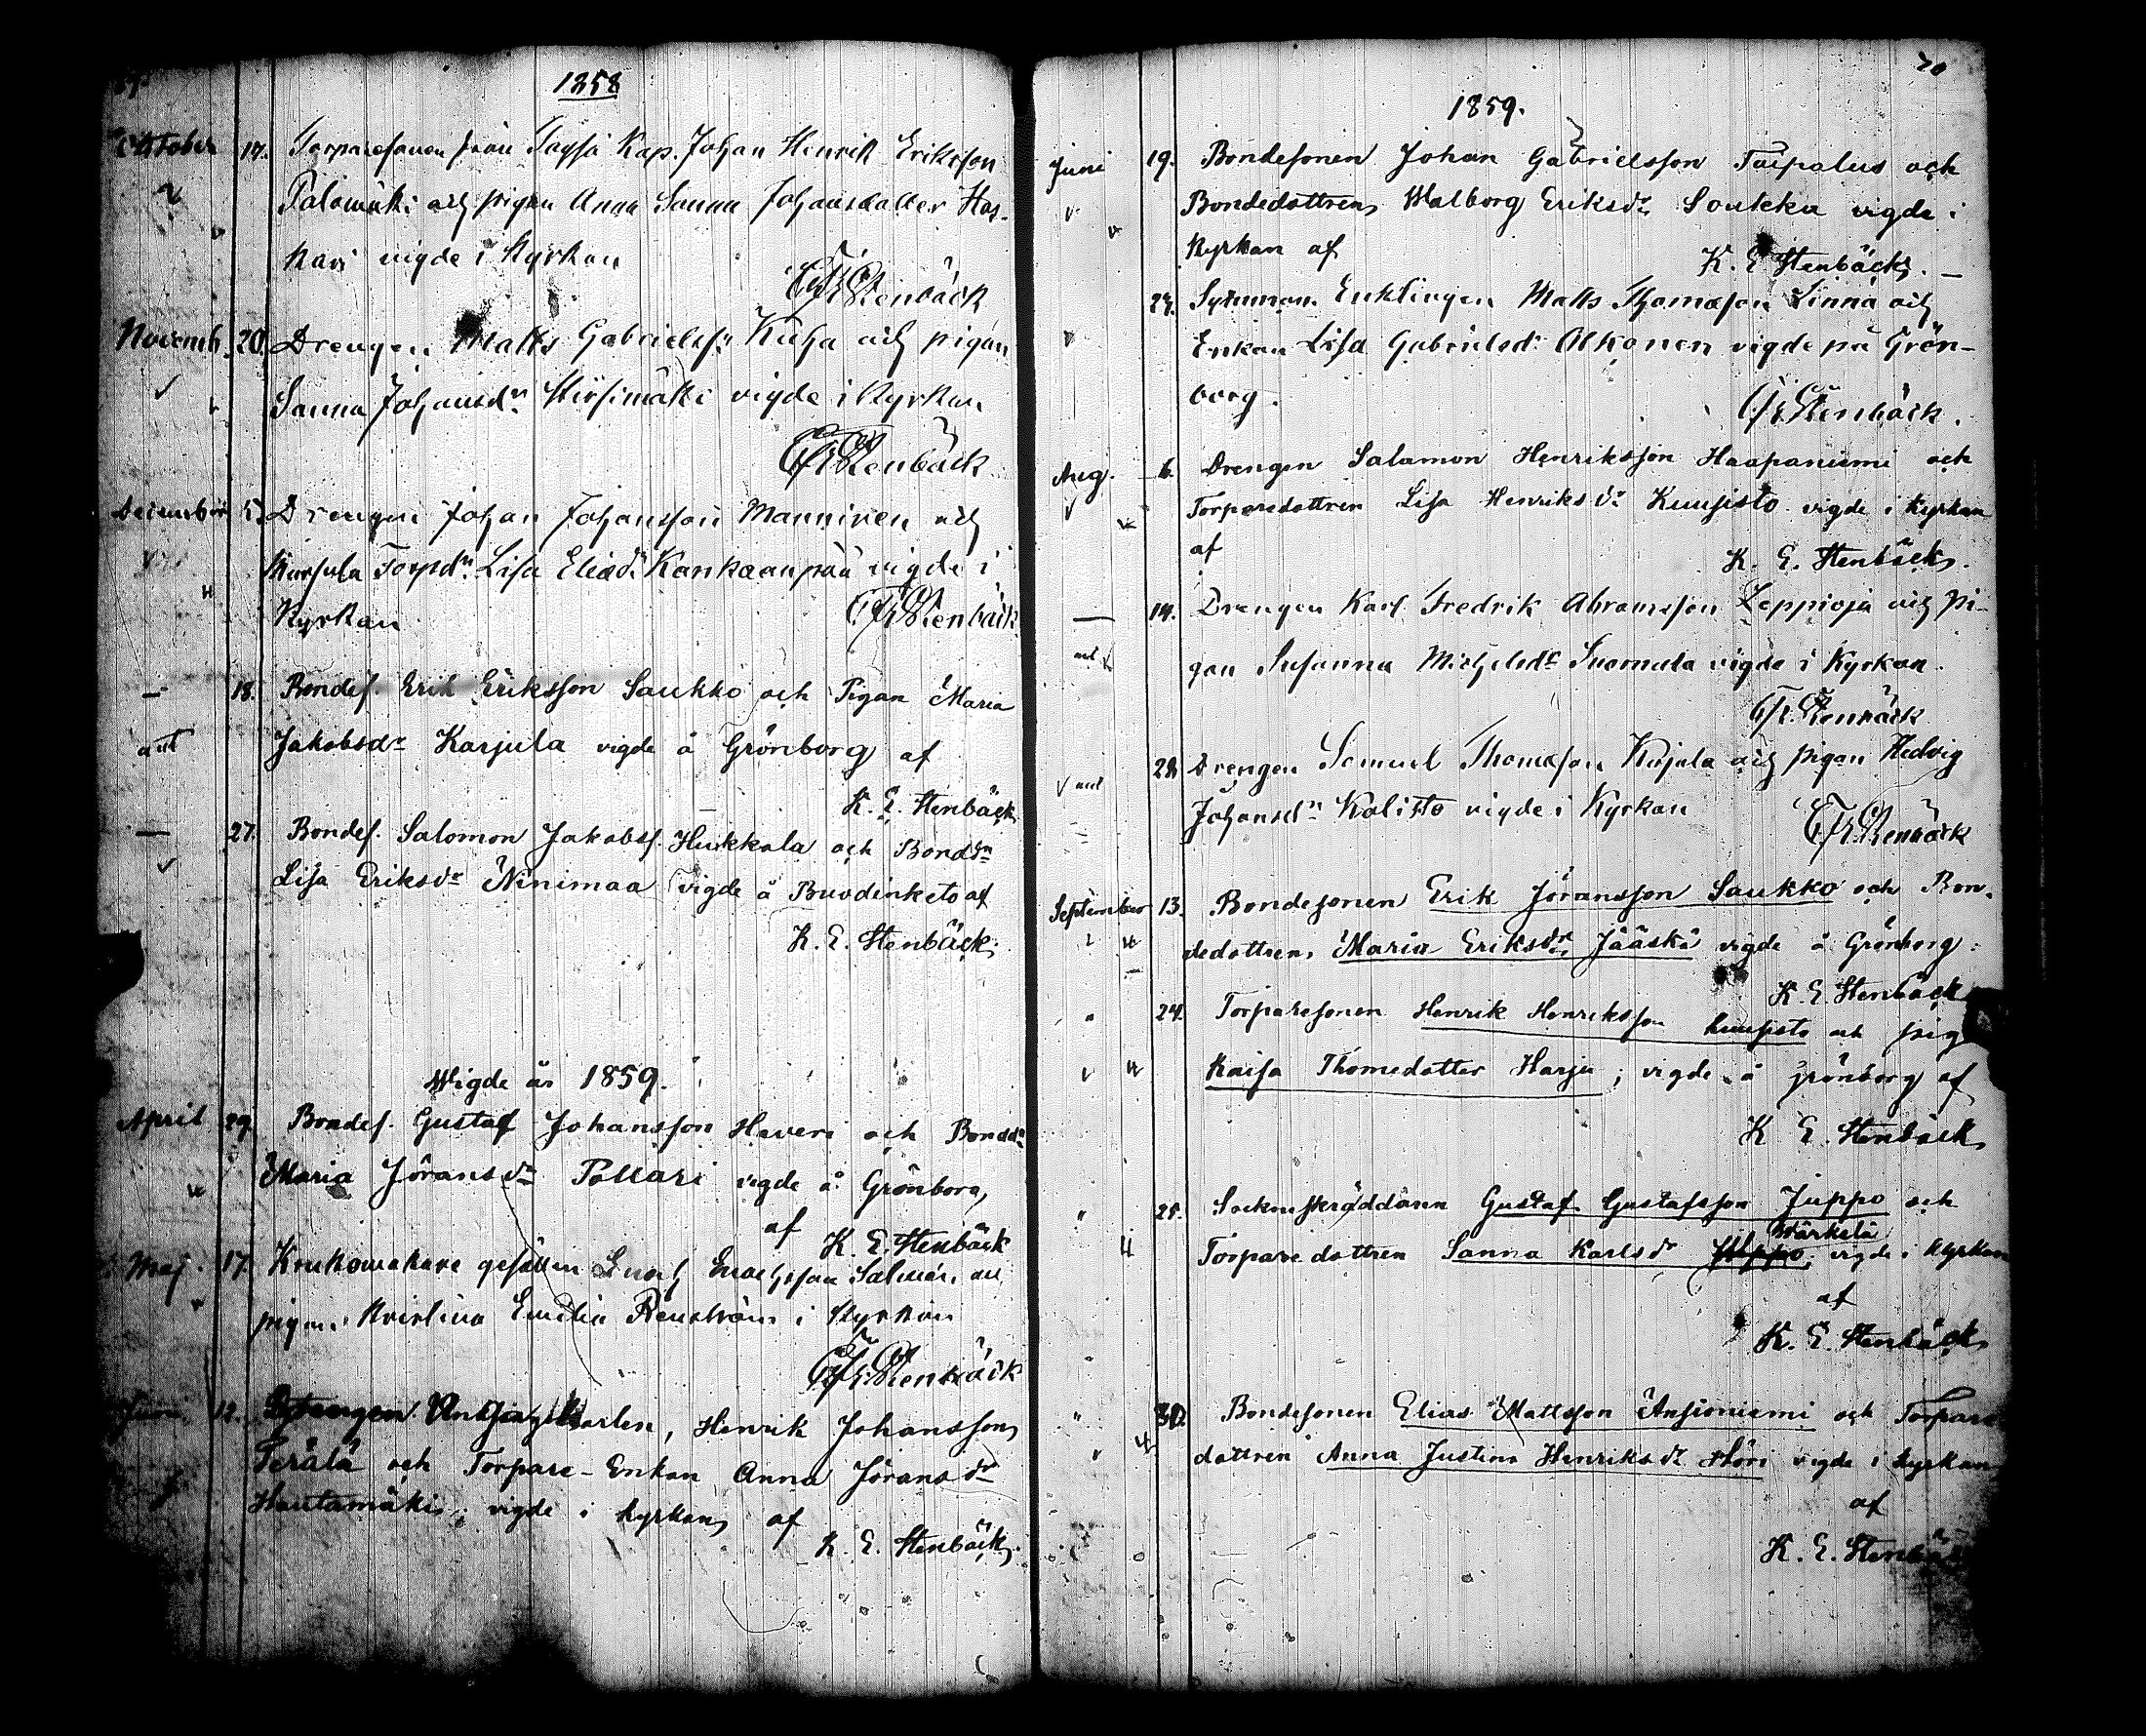 1858
October 17. Torparesonen från Töysä Kap. Johan Henrik Eriksson
Palomäki och pigan Anna Sanna Johansdotter Has-
kari vigde i Kyrkan
Stenbäck
Novemb. 20. Drengen Matts Gabrielss: Kuha och pigan
Sanna Johansdr Hirsimäki vigde i Kyrkan
Stenbäck
December 5. Drengen Johan Johansson Manninen och
Torpdr Lisa Eliedr Kankaanpää vigde i
Kyrkan Stenbäck
— 18. Bondes. Erik Eriksson Saukko och Pigan Maria
Jakobsdr Karjula vigde å Grönborg af
K. E. Stenbäck
— 27. Bondes. Salomon Jakobss. Hukkala och Bonddn
Lisa Eriksdr Ninimaa vigde å af
K. E. Stenbäck
Wigde år 1859.
April 29. Bondes. Gustaf Johansson Haveri och Bonddn
Maria Jöransdr Pollari vigde å Grönborg
af K. E. Stenbäck
Maj 17. Krukomakare gesällen Enoch Enochsson Salmén och
pigan Emilia Renström i Kyrkan
Stenbäck
Juni 12. Enklingen Karlen, Henrik Johansson
Perälä och Torpare-Enkan Anna Jöransdr
Hautamäki; vigde i kyrkan af
K. E. Stenbäck
70
1859.
Juni 19. Bondesonen Johan Gabrielsson Taipalus och
Bondedottren Walborg Eriksdr Soukka vigde i
Kyrkan af
K. E. Stenbäck. —
24. Enklingen Matts Thomasson Linna och
Enkan Lisa Gabrielsdr Alkonen vigde på Grön-
borg.
Stenbäck.
Aug. 6. Drengen Salamon Henriksson Haapaniemi och
Torparedottren Lisa Henriksdr Kuusisto vigde i kyrkan
af
K. E. Stenbäck.
— 14. Drengen Karl Fredrik Abramsson Leppioja och pi-
gan Susanna Michelsdr Suomula vigde i Kyrkan.
Stenbäck
28 Drengen Samuel Thomasson Kujala och pigan Hedvig
Johansdr Kalisto vigde i Kyrkan
Stenbäck
September 13. Bondesonen Erik Jöransson Saukko och Bon-
dedottren Maria Eriksdr Jääskä vigde å Grönborg:
K. E. Stenbäck
" 24. Torparesonen Henrik Henriksson Kuusisto och pig
Kaisa Thomedotter Harju; vigde å Grönborg af
K. E. Stenbäck
" 25. Sockneskräddaren Gustaf Gustafsson Juppo och
Märkelä
Torparedottren Sanna Karlsdr vigde i kyrkan
af
K. E. Stenbäck
" 30. Bondesonen Elias Mattsson Ansioniemi och Torpare
dottren Anna Justina Henriksdr Höri vigde i kyrkan
af
K. E. Stenbäck